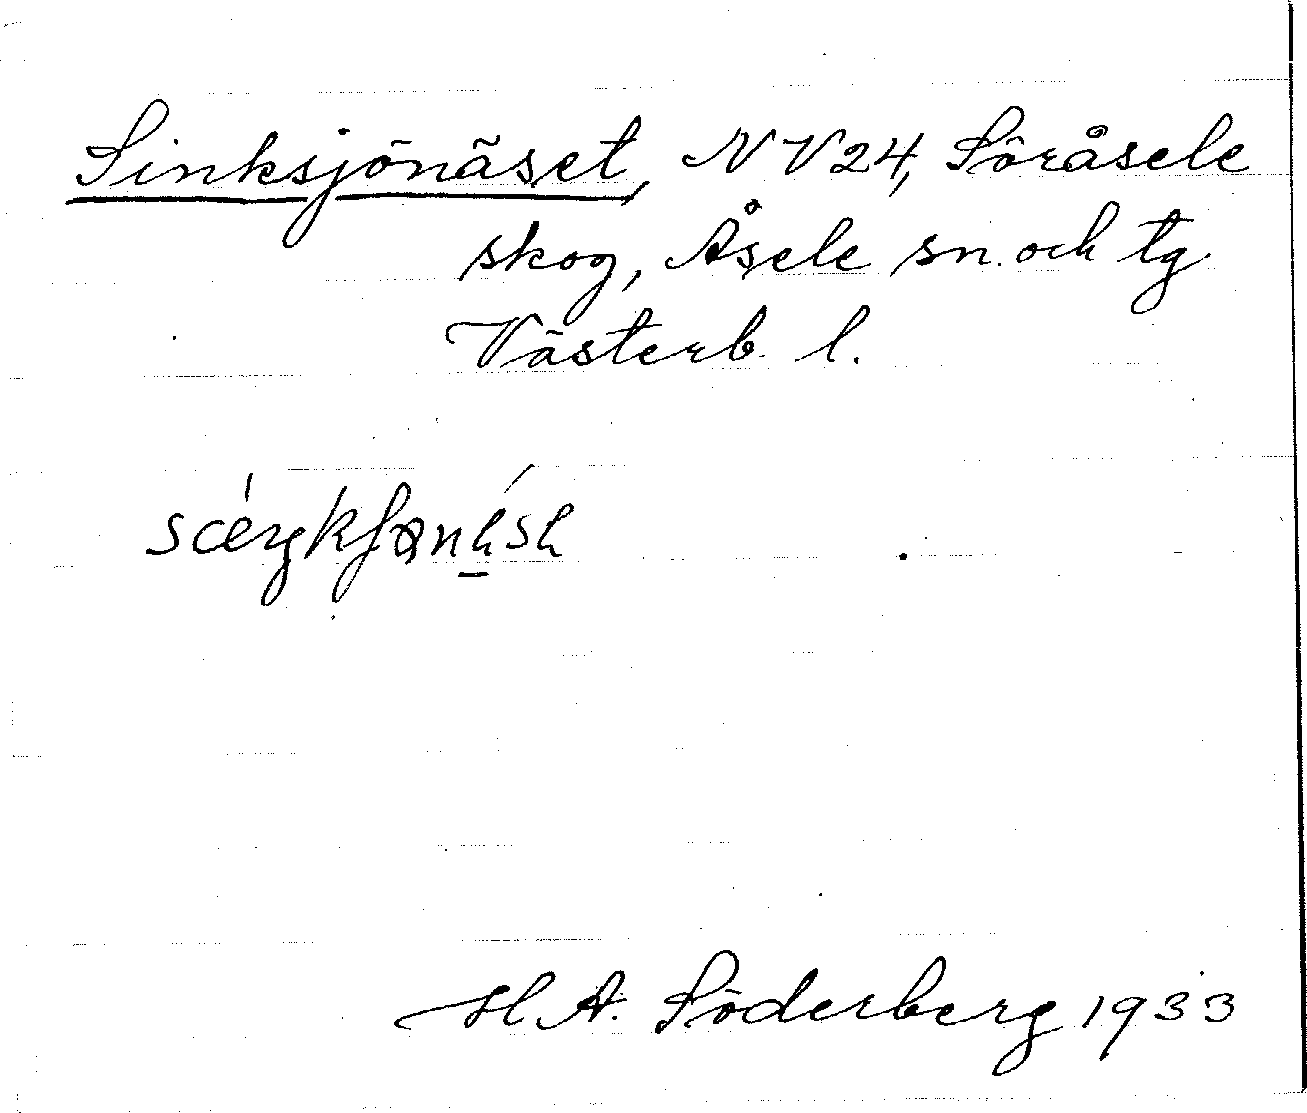 Sinksjönäset, NV24, Söråsele
skog, Åsele sn. och tg.
Västerb. l.
H. A. Söderberg 1933